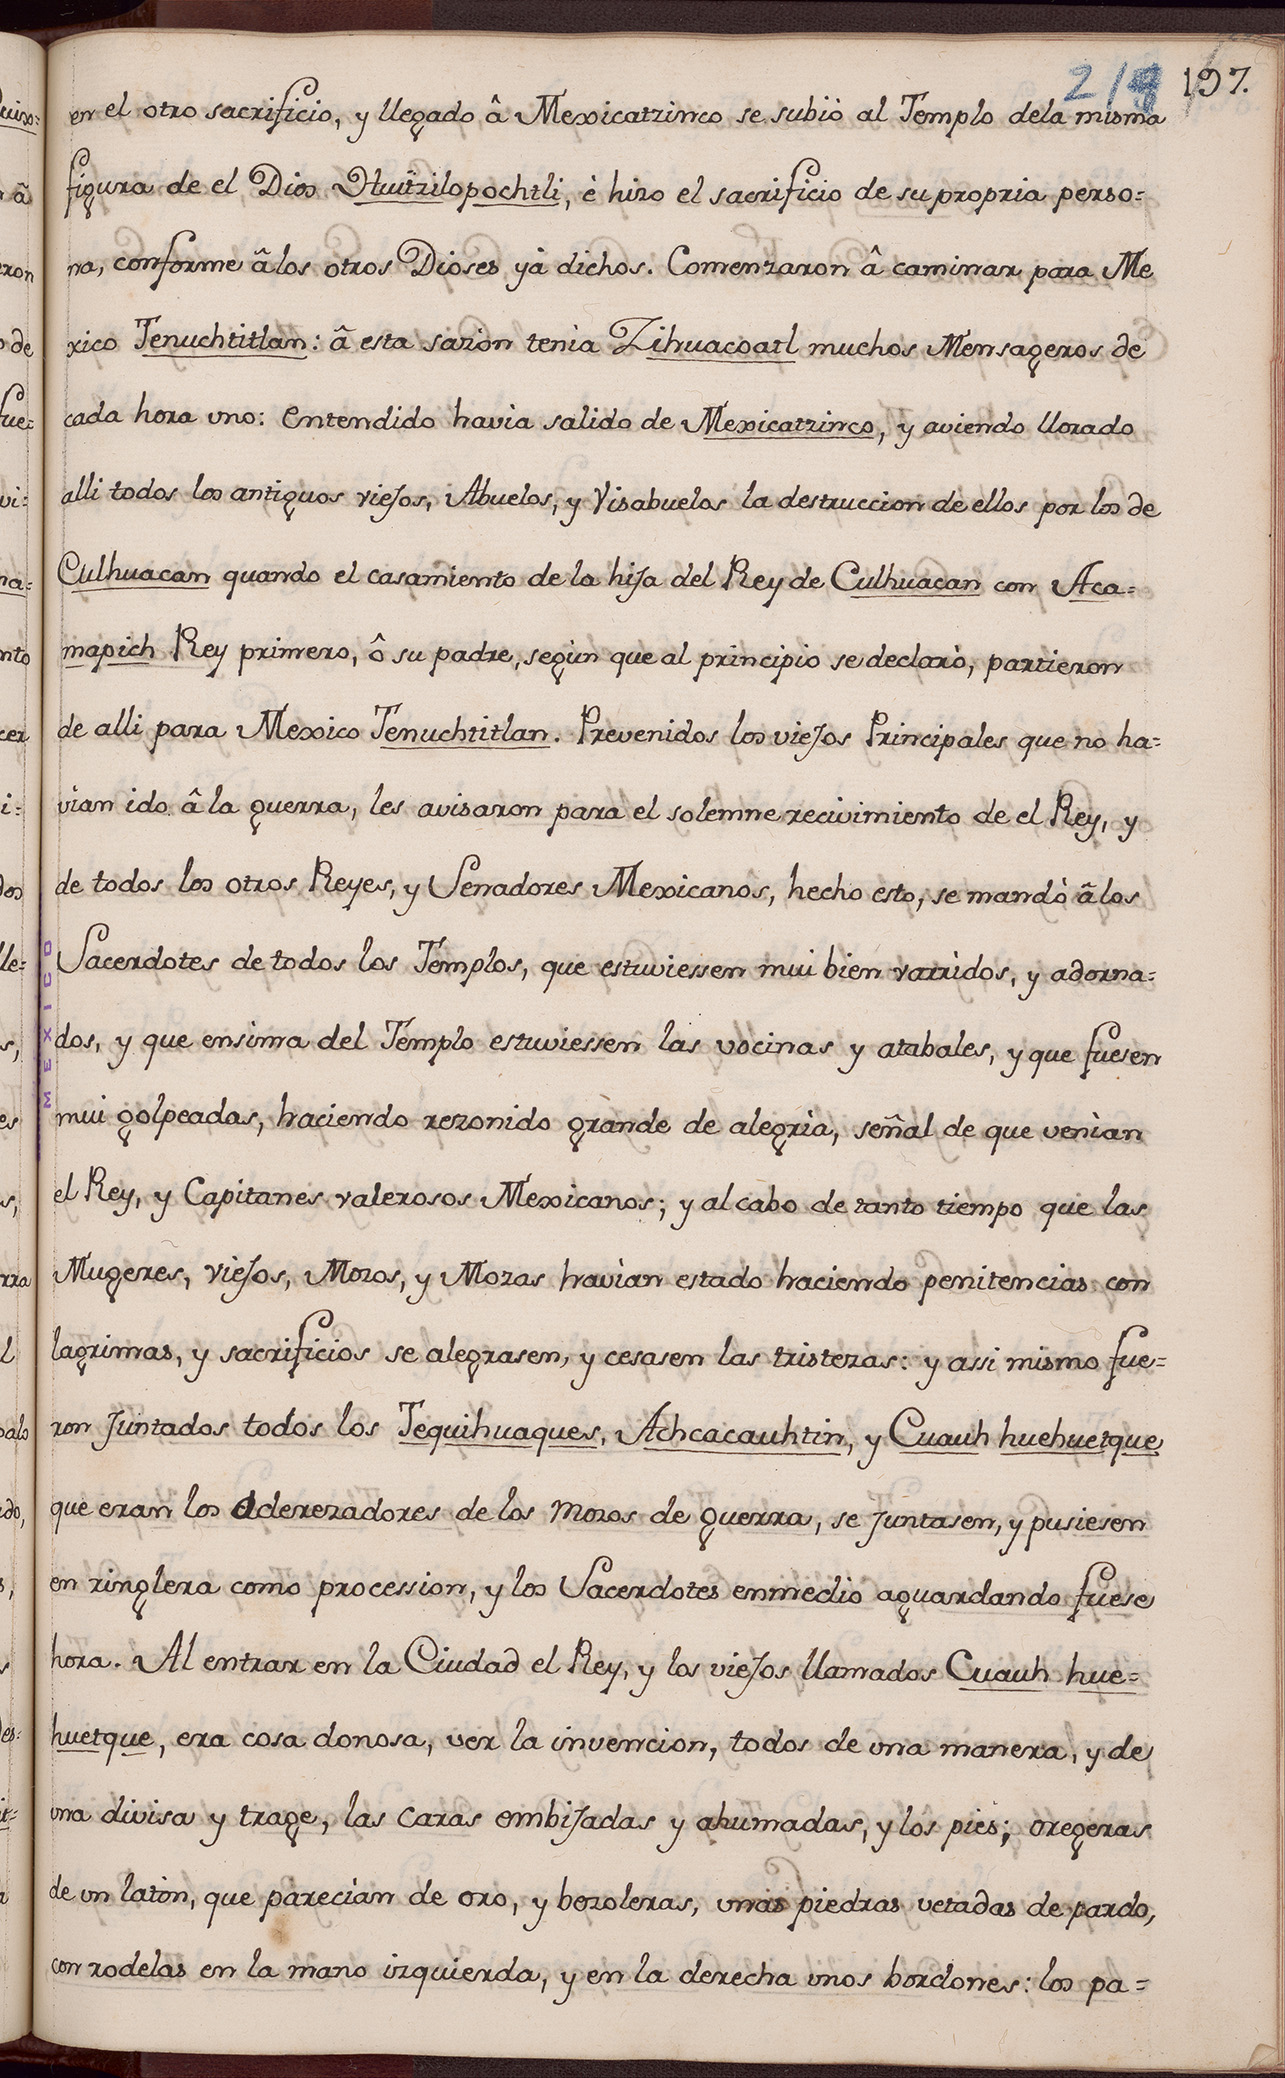 219 197.
en el otro sacrificio, y llegado â Mexicatzinco se subiò al Templo dela misma
figura de el Dios Huitzilopochtli, è hizo el sacrificio de su propria perso=
na, conforme âlos otros Dioses yà dichos. Comenzaron â caminar para Me
xico Tenuchtitlan: â esta sazion tenìa Zihuacoatl muchos Mensageros de
cada hora uno: entendido havìa salido de Mexicatzinco, y aviendo llorado
alli todos los antiguos viejos, Abuelos, y Visabuelos la destruccion de ellos por los de
Culhuacan quando el casamiento de la hija del Rey de Culhuacan con Aca=
mapich Rey primero, ô su padre, segùn que al principio se declarò, partieron
de alli para Mexico Tenuchtitlan. Prevenidos los viejos Principales que no ha=
vian ido â la guerra, les avisaron para el solemne recivimiento de el Rey, y
de todos los otros Reyes, y Senadores Mexicanos, hecho esto, se mandò âlos
Sacerdotes de todos los Templos, que estuviessen mui bien varridos, y adorna=
dos, y que ensima del Templo estuviessen las vocinas y atabales, y que fuesen
mui golpeadas, haciendo rezonido grande de alegrìa, señal de que venìan
el Rey, y Capitanes valerosos Mexicanos; y al cabo de tanto tiempo que las
Mugeres, viejos, Mozos, y Mozas havìan estado haciendo penitencias con
lagrimas, y sacrificios se alegrasen, y cesasen las tristezas: y assi mismo fue=
ron juntados todos los Tequihuaques, Achcacauhtin, y Cuauh huehuetque
que eran los aderezadores de los mozos de guerra, se juntasen, y pusiesen
en ringlera como procession, y los Sacerdotes enmedio aguardando fuese
hora. Al entrar en la Ciudad el Rey, y los viejos llamados Cuauh hue=
huetque, era cosa donosa, ver la invencion, todos de una manera, y de
una divisa y trage, las caras embijadas y ahumadas, y los pies; oregeras
de un latòn, que parecìan de oro, y bezoleras, unas piedras vetadas de pardo,
con rodelas en la mano izquierda, y en la derecha unos bordones: los pa=
MEXICO